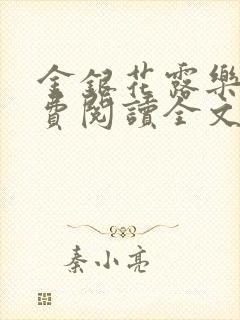 金銀花露樂
費閱讀全文
秦小亮